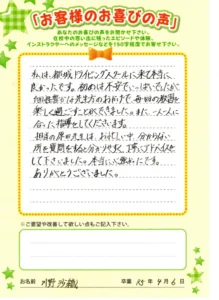 「お客様のお喜びの声」
あなたのお喜びの声をお聞かせ下さい。
在校中の思い出に残ったエピソードや体験、
インストラクターへのメッセージなどを150字程度でお寄せ下さい。
私は、都城ドライビングスクールに来て本当に
良かったです。初めは不安でいっぱいでしたが
先生方のおかげで、毎回の教習を
楽しく過ごすことができました。また、一人一人に
合った指導をしてくださいます。
担当の先生は、お忙しい中、分かりやすい
所を質問しても
して下さいました。本当に
ありがとうございました。
※ご要望や改善して欲しい点もご記入下さい。
お名前
卒業 25年9月6日